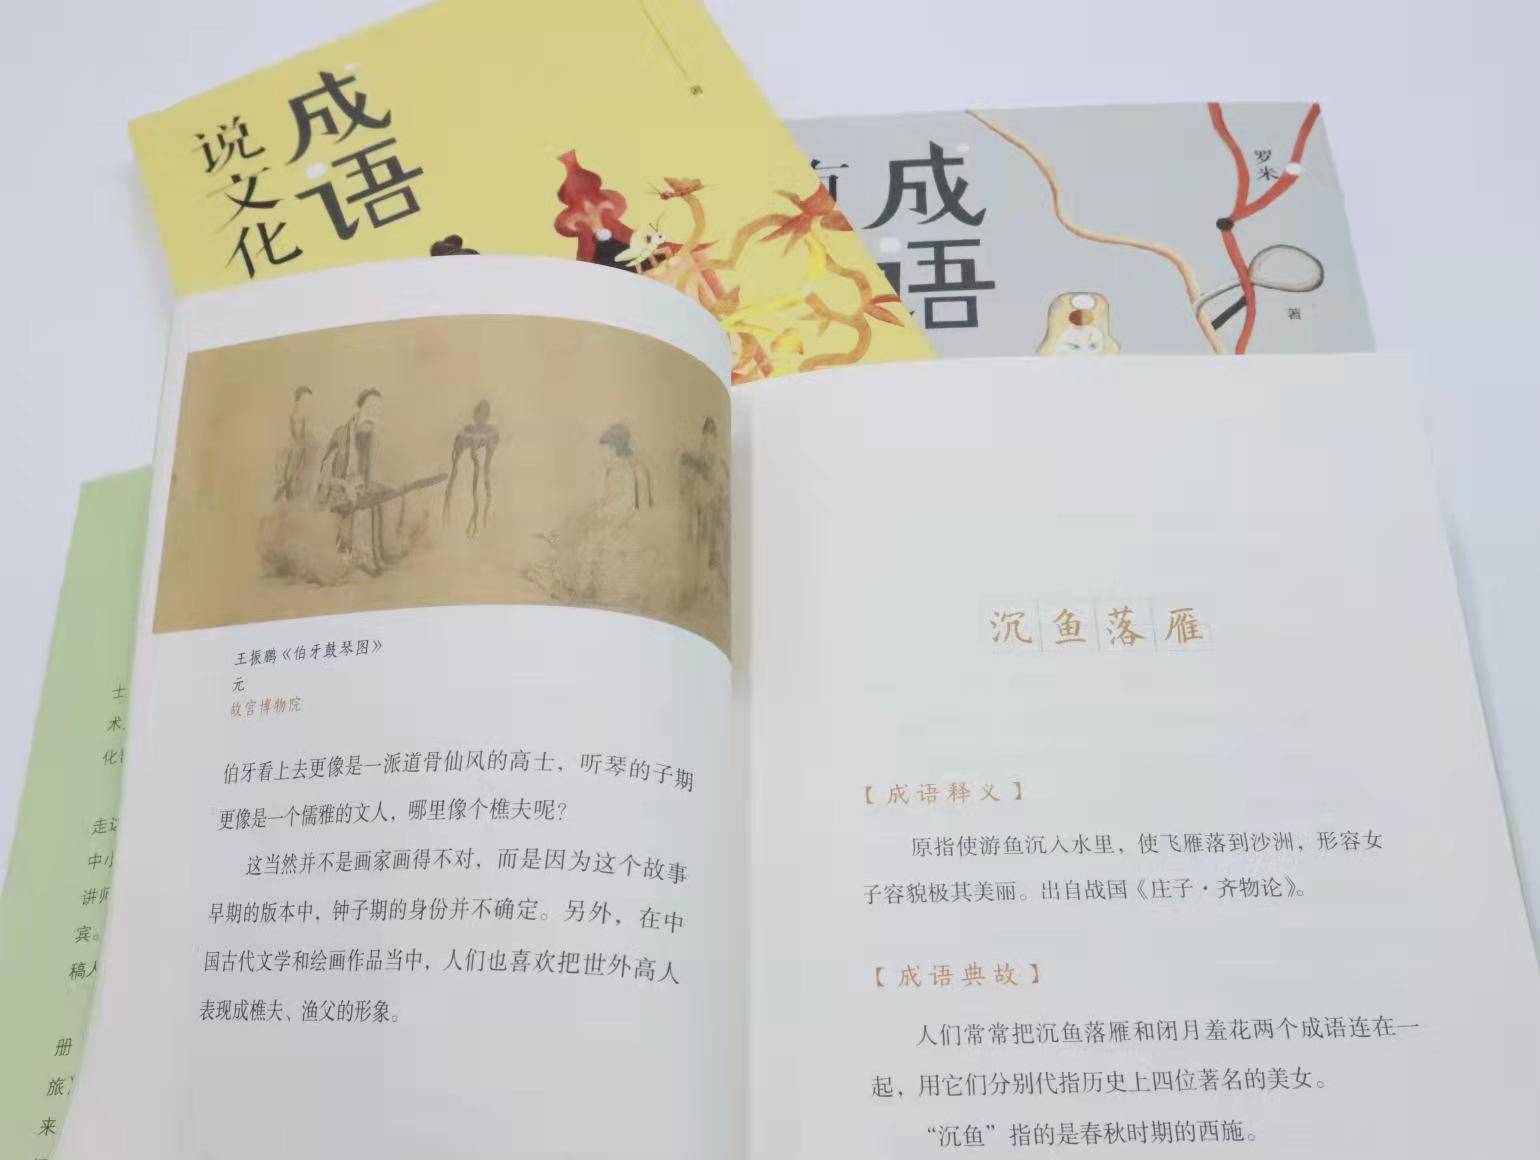 成语
说文化
著
成语
罗米
著
王振鹏《伯牙鼓琴图》
元
故宫博物院
伯牙看上去更像是一派道骨仙风的高士，听琴的子期
更像是一个儒雅的文人，哪里像个樵夫呢？
这当然并不是画家画得不对，而是因为这个故事
早期的版本中，钟子期的身份并不确定。另外，在中
国古代文学和绘画作品当中，人们也喜欢把世外高人
表现成樵夫、渔父的形象。
沉鱼落雁
【成语释义】
原指使游鱼沉入水里，使飞雁落到沙洲，形容女
子容貌极其美丽。出自战国《庄子·齐物论》。
【成语典故】
人们常常把沉鱼落雁和闭月羞花两个成语连在一
起，用它们分别代指历史上四位著名的美女。
“沉鱼”指的是春秋时期的西施。
士
术
化
走
中小
讲师
宾。
稿人
册
旅
来